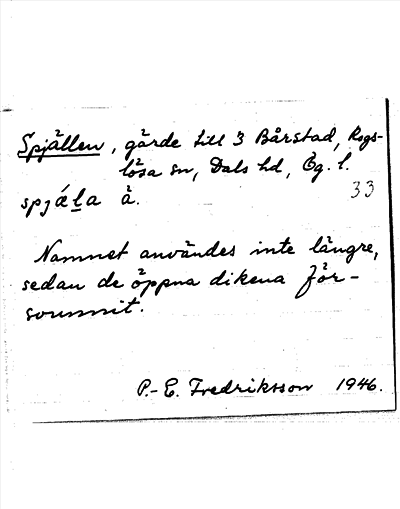 Spjällen, gärde till 3 Bårstad, Rogs-
lösa sn, Dals hd, Ög. l.
spjǽla å. 33
Namnet användes inte längre,
sedan de öppna dikena för-
svunnit.
P.-E. Fredriksson 1946.